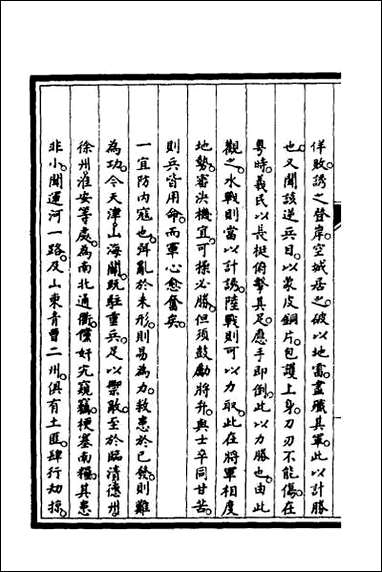 佯敗誘之登岸空城居之破以地雷盡殲其軍此以計勝
也又聞該逆兵目以蒙皮銅片包護上身刀刃不能傷在
粵時義民以長梃俯擊其足應手即倒此以力勝也由此
觀之水戰則當以計誘陸戰則可以力取此在將軍相度
地勢審決機宜可操必勝但須鼓勵將弁與士卒同甘苦
則兵皆用命而軍心愈奮矣
一宜防內寇也弭亂於未形則易為力救患於已發則難
為功今天津山海關既駐重兵足以禦敵至於臨清德州
徐州淮安等處為南北通衢儻奸宄窺竊梗塞南糧其患
非小聞運河一路及山東青曹二州俱有土匪肆行劫掠